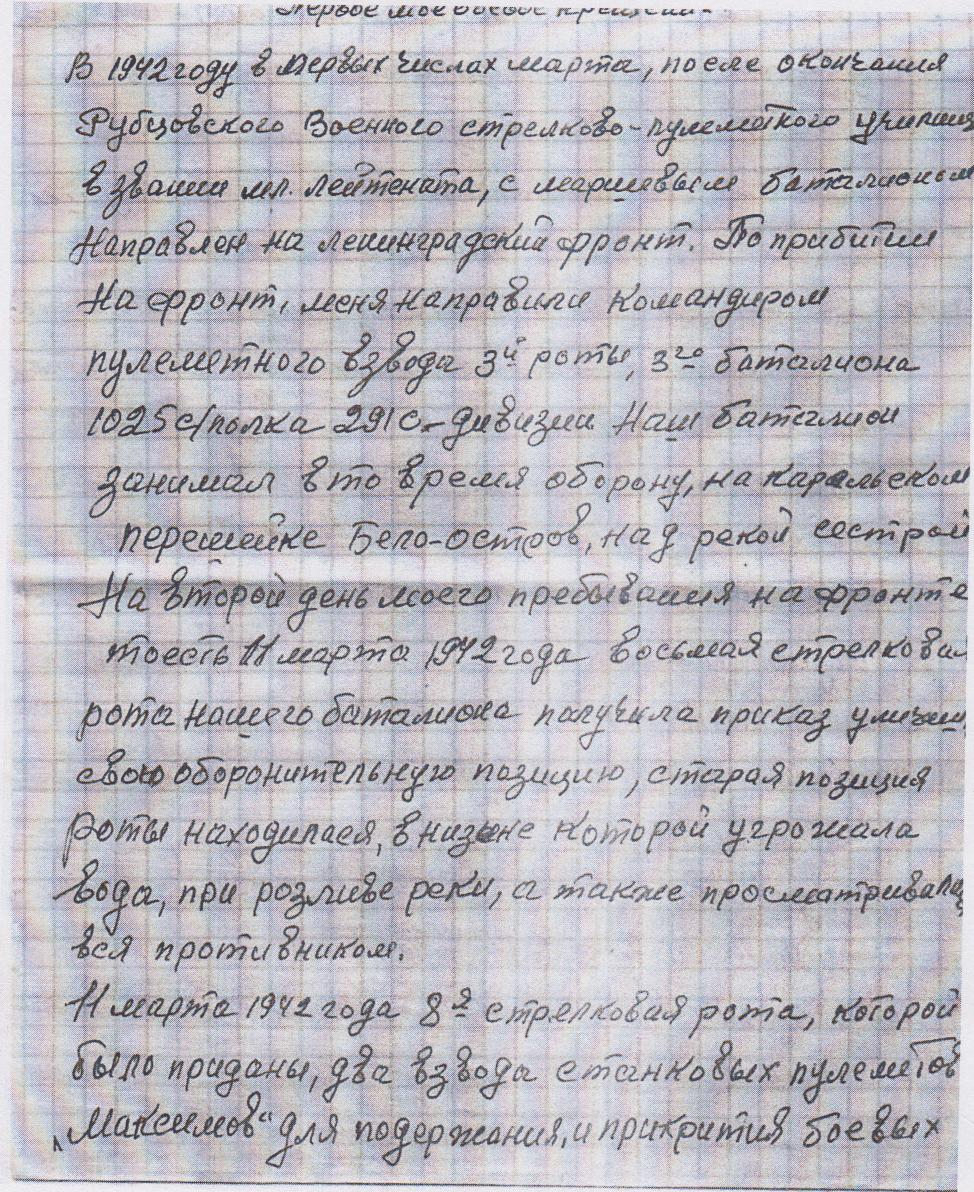 Первое мое боевое крещение.
В 1942 году в первых числах марта, после окончания
Рубцовского Военного стрелково-пулеметного училищ
в звании мл. лейтената, с маршевым баталионом
Направлен на ленинградский фронт. По прибитии
На фронт, меня направили командиром
пулеметного взвода 3й роты, 3го баталиона
1025 с/полка 291 с-дивизии Наш баталион
занимал в то время оборону, на карельском
перешейке Бело-остров, над рекой сестрой
На второй день моего пребывания на фронте
тоесть 11 марта 1942 года восьмая стрелковая
рота нашего баталиона получила приказ
свою оборонительную позицию, старая позиция
Роты находилася, в низине которой угрожала
вода, при розливе реки, а также просматривала
вся противником.
11 марта 1942 года 8я стрелковая рота, которой
было приданы, два взвода станковых пулеметов
„Максимов“ для подержания, и прикрития боевых